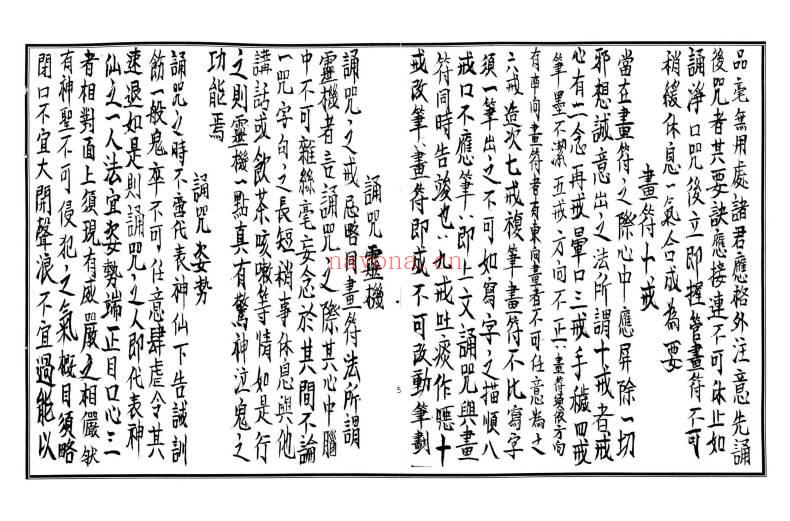 品毫無用處諸君應格外注意先誦
後咒者其要訣應接連不可休止如
誦淨口咒後立即握管畫符不可
稍緩休息一氣合成為要
畫符十戒
當在畫符之際心中應屏除一切
邪想誠意出之法所謂十戒者戒
心有二念再戒暈口三戒手穢四戒
筆墨不潔五戒方向不正畫符須發方向
有南向畫符者有東向畫者不可任意為之
六戒造次七戒複筆畫符不比寫字
須一筆出之不可如寫字之描順八
戒口不應筆即上文誦咒與畫
符同時告竣也九戒吐痰作噁十
戒改筆畫符即成不可改動筆劃
5
誦咒靈機
誦咒之戒忌略同畫符法所謂
靈機者言誦咒之際其心中腦
中不可雜絲毫妄念於其間不論
一咒字句之長短稍事休息與他
講話或飲茶咳嗽等情如是行
之則靈機一點真有驚神泣鬼之
功能焉
誦咒姿勢
誦咒之時不啻代表神仙下告誡訓
飭一般鬼卒不可任意肆虐令其
速退如是則誦咒之人即代表神
仙之一人法宜姿勢端正目口心三
者相對面上須現有威嚴之相儼然
有神聖不可侵犯之氣概目須略
閉口不宜大開聲浪不宜過能以
nayona.cn